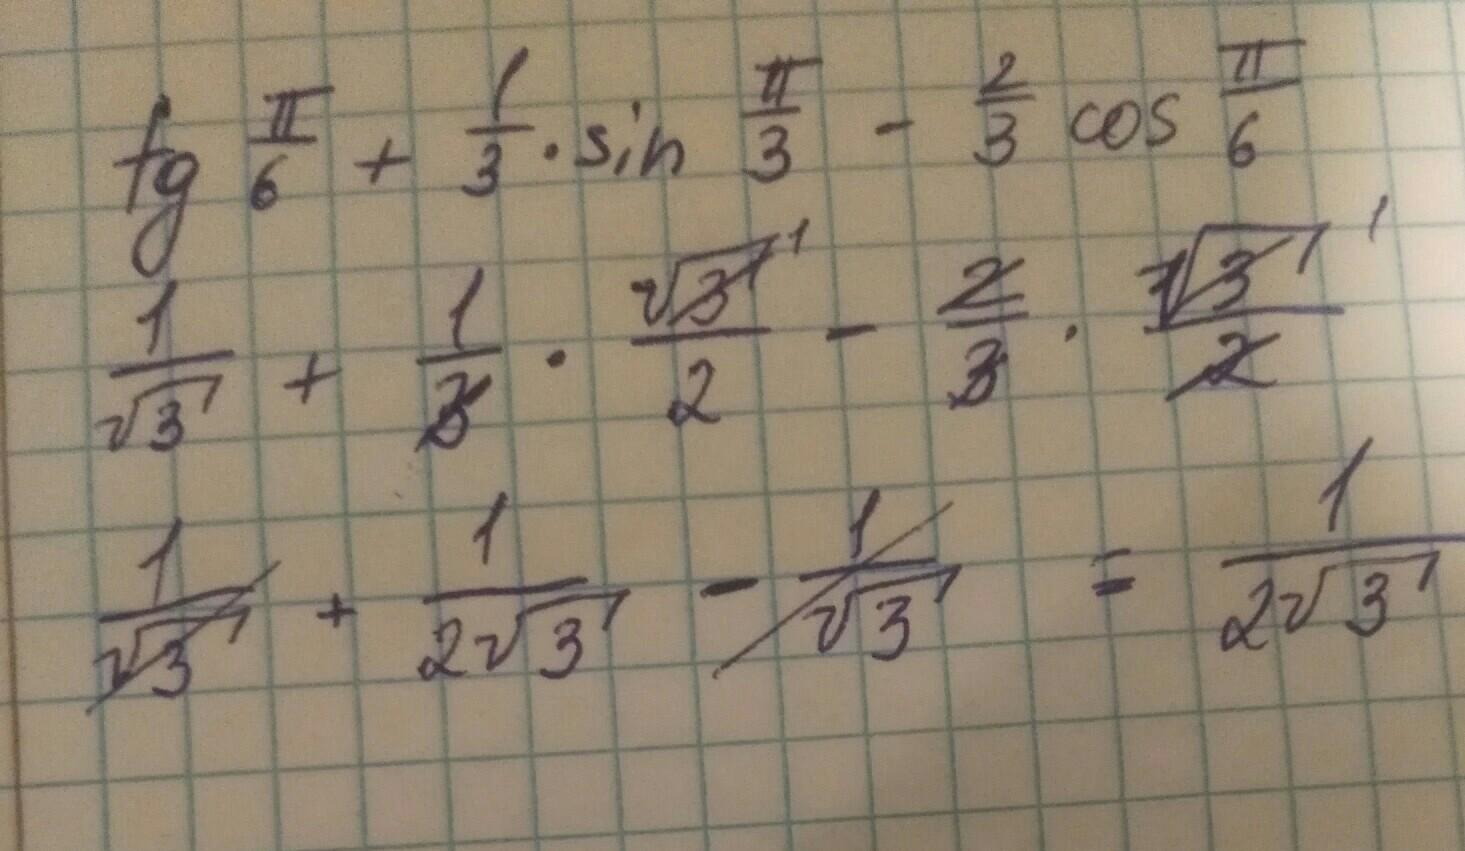 tg π/6 + 1/3 · sin π/3 - 2/3 cos π/6
1/√3 + 1/3 · √3/2 1 - 2/3 · √3/2 1
1/√3 + 1/2√3 - 1/√3 = 1/2√3